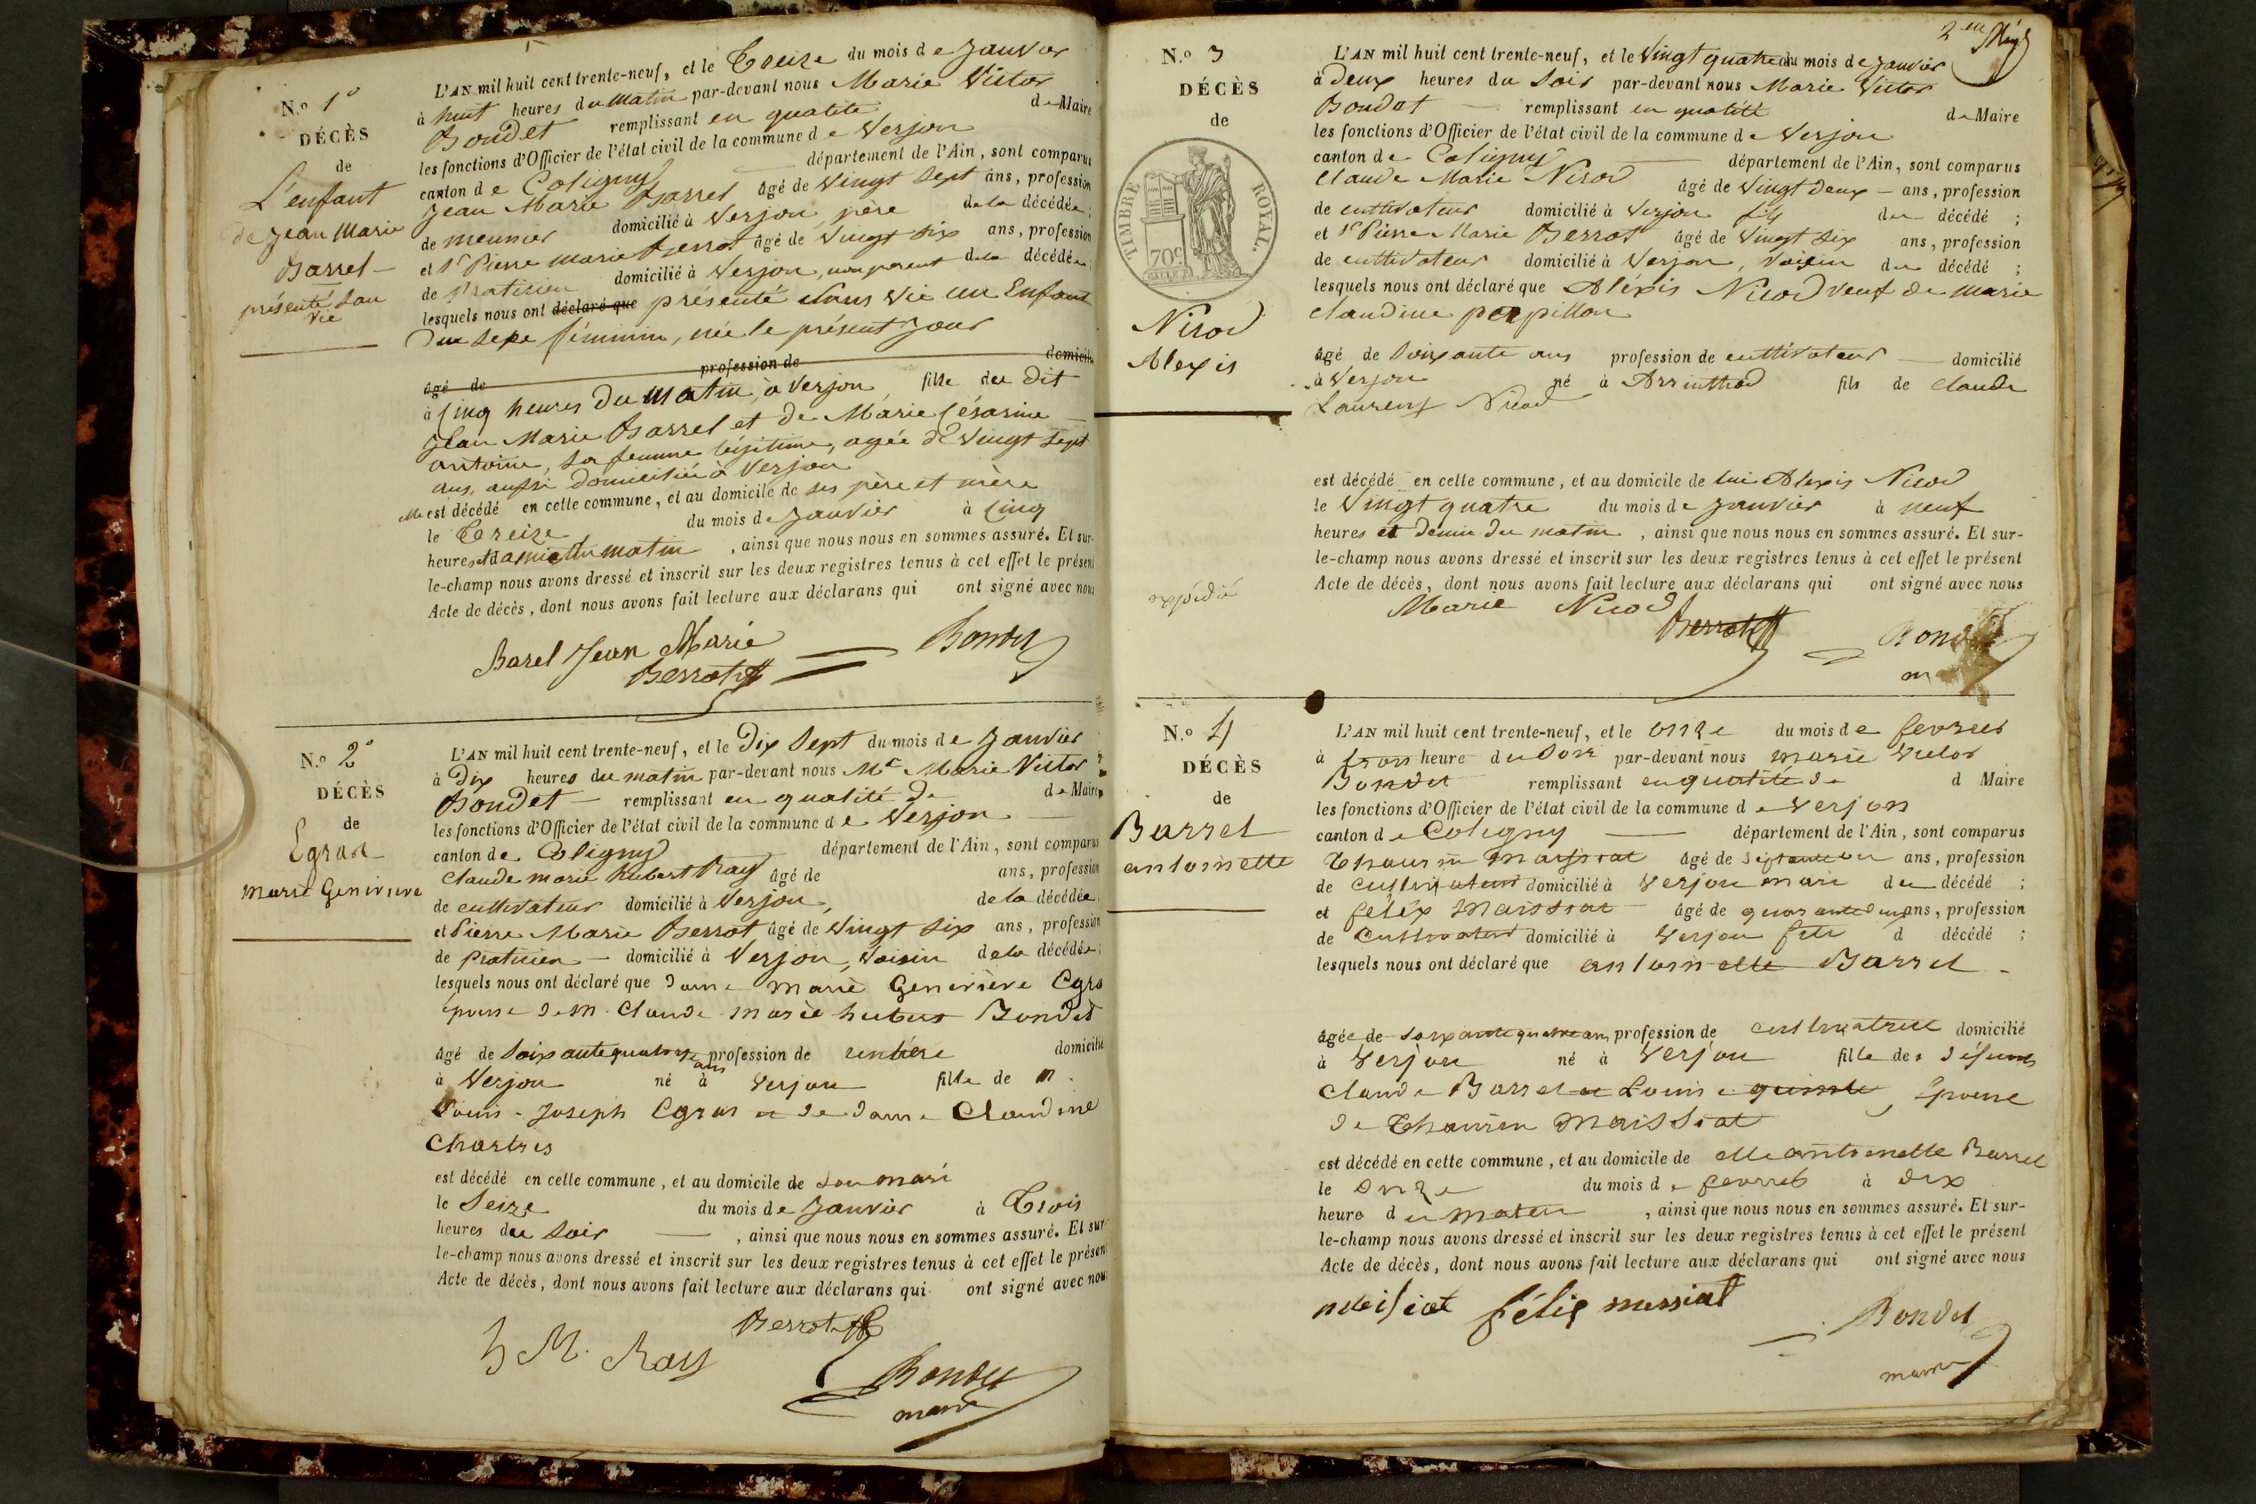 N.o 1o
DÉCÈS
de
L'enfant
de Jean Marie
Barrel
présenté san
vie
L'AN mil huit cent trente-neuf, et le Treize du mois de Janvier
à huit heures du matin par-devant nous Marie Victor
Bondet remplissant en qualité de Maire
les fonctions d'Officier de l'état civil de la commune de Verjon
canton de Coligny département de l'Ain, sont comparus
Jean Marie Barrel âgé de vingt sept ans, profession
de meunier domicilié à Verjon, père de la décédée ;
et Sr Pierre Marie Berrot âgé de vingt six ans, profession
de Praticien domicilié à Verjon, non parent de la décédée ;
lesquels nous ont déclaré que présenté sans vie un Enfant
du sexe féminin, née le présent jour
âgé de profession de domicilié
à Cinq heures du matin, à Verjon fille du dit
Jean Marie Barrel et de Marie Césarine
Antoine, sa femme légitime, agée de vingt sept
ans, aussi domiciliée à Verjon
elle est décédé en cette commune, et au domicile de ses père et mère
le Treize du mois de Janvier à Cinq
heures et demie du matin, ainsi que nous nous en sommes assuré. Et sur-
le-champ nous avons dressé et inscrit sur les deux registres tenus à cet effet le présent
Acte de décès, dont nous avons fait lecture aux déclarans qui ont signé avec nous
Barel Jean Marie
Berrot
Bondet
N.o 2o
DÉCÈS
de
Egran
Marie Genevieve
L'AN mil huit cent trente-neuf, et le Dix Sept du mois de Janvier
à Dix heures du matin par-devant nous Mr Marie Victor
Bondet remplissant en qualité de de Maire
les fonctions d'Officier de l'état civil de la commune de Verjon
canton de Coligny département de l'Ain, sont comparus
Claude Marie Hubert Ray âgé de ans, profession
de cultivateur domicilié à Verjon, de la décédée
et Pierre Marie Berrot âgé de vingt six ans, profession
de praticien domicilié à Verjon, voisin de la décédée ;
lesquels nous ont déclaré que dame Marie Genevière Egra
épouse de M. Claude Marie hubert Bondet
âgé de soixante quatorze ans profession de rentière domicilié
à Verjon né à Verjon fille de M.
Louis-Joseph Egran et de dame Claudine
Chartres
est décédé en cette commune, et au domicile de son mari
le Seize du mois de Janvier à Trois
heures du soir, ainsi que nous nous en sommes assuré. Et sur-
le-champ nous avons dressé et inscrit sur les deux registres tenus à cet effet le présent
Acte de décès, dont nous avons fait lecture aux déclarans qui ont signé avec nous
h M. Ray
Berrot
Bondet
maire
N.o 3
DÉCÈS
de
TIMBRE ROYAL.
70c
Nicod
Alexis
expédié
L'AN mil huit cent trente-neuf, et le vingt quatre du mois de janvier
à Deux heures du Soir par-devant nous Marie Victor
Bondet remplissant en qualité de Maire
les fonctions d'Officier de l'état civil de la commune de Verjon
canton de Coligny département de l'Ain, sont comparus
Claude Marie Nicod âgé de vingt deux ans, profession
de cultivateur domicilié à Verjon fils du décédé ;
et Sr Pierre Marie Berrot âgé de vingt six ans, profession
de cultivateur domicilié à Verjon, voisin du décédé ;
lesquels nous ont déclaré que Alexis Nicod veuf de Marie
Claudine papillon
âgé de soixante ans profession de cultivateur domicilié
à Verjon né à Arinthod fils de Claude
Laurent Nicod
est décédé en cette commune, et au domicile de lui Alexis Nicod
le vingt quatre du mois de Janvier à neuf
heures et demie du matin, ainsi que nous nous en sommes assuré. Et sur-
le-champ nous avons dressé et inscrit sur les deux registres tenus à cet effet le présent
Acte de décès, dont nous avons fait lecture aux déclarans qui ont signé avec nous
Marie Nicod
Berrot
Bondet
N.o 4
DÉCÈS
de
Barrel
antoinette
L'AN mil huit cent trente-neuf, et le onze du mois de fevrier
à trois heure du soir par-devant nous Marie Victor
Bondet remplissant en qualité de d Maire
les fonctions d'Officier de l'état civil de la commune de Verjon
canton de Coligny département de l'Ain, sont comparus
Thaurin Maissiat âgé de ans, profession
de cultivateur domicilié à Verjon mari du décédé ;
et felix Maissiat âgé de quarante deux ans, profession
de cultivateur domicilié à Verjon fils d décédé ;
lesquels nous ont déclaré que antoinette Barrel
âgée de soixante quatre ans profession de cultivatrice domicilié
à Verjon né à Verjon fille des défunts
Claude Barrel et Louise, Epouse
de Thaurin Maissiat
est décédé en cette commune, et au domicile de elle antoinette Barrel
le onze du mois de fevrier à dix
heure du matin, ainsi que nous nous en sommes assuré. Et sur-
le-champ nous avons dressé et inscrit sur les deux registres tenus à cet effet le présent
Acte de décès, dont nous avons fait lecture aux déclarans qui ont signé avec nous
félix messiat
Bondet
maire